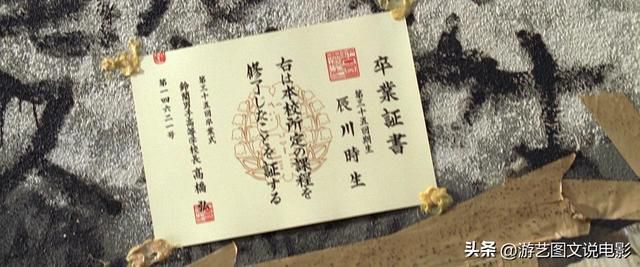 卒業証書
第三十五回卒業生
辰川時生
右は本校所定の課程を
修了したことを証する
第三十五回卒業式
鈴蘭男子高等学校長 高橋弘
第一四六二一号
头条 @游艺图文说电影